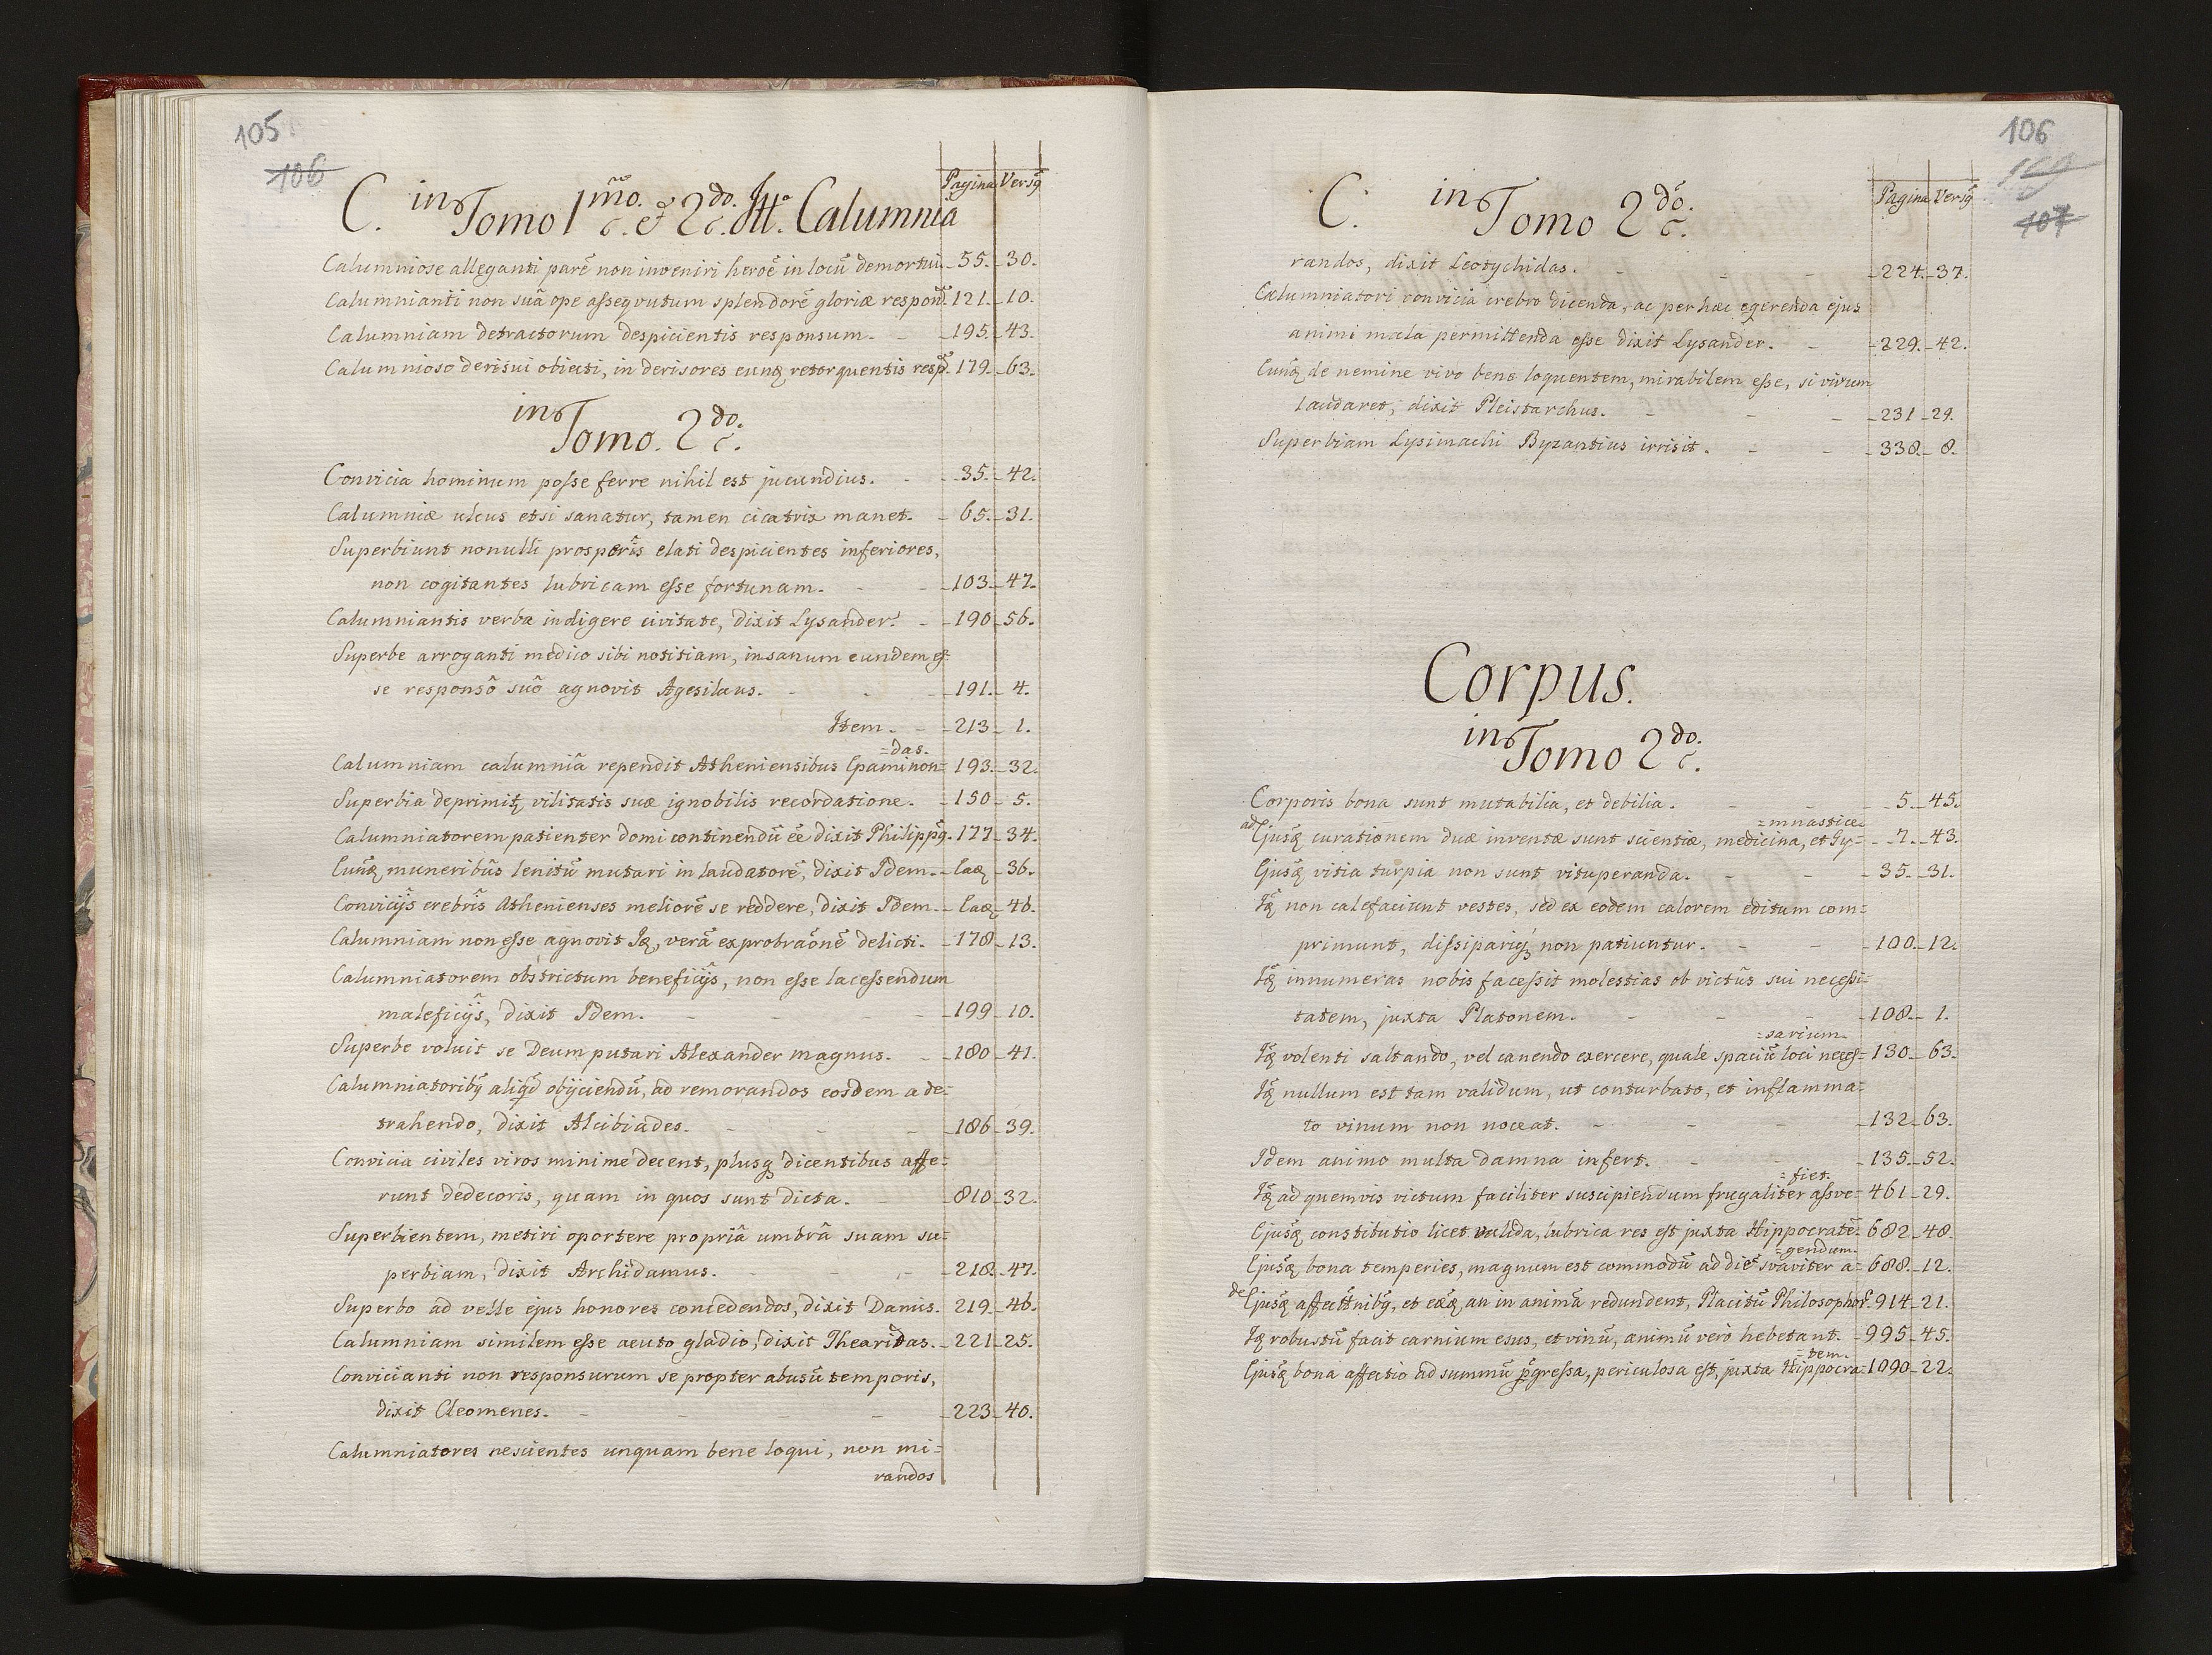 105
106
Pagina Versq̃
C. in Tomo 1mo. et 2do. Itt. Calumnia
Calumniose alleganti parē non inveniri heroē in locū demortui - 55. - 30.
Calumnianti non suâ ope assequutum splendorē gloriæ respon. 121. - 10.
Calumniam detractorum despicientis responsum. - 195. - 43.
Calumnioso derisui obiecti, in derisores eunq̢ retorquentis resp. 179. - 63.
in Tomo. 2do.
Convicia hominum posse ferre nihil est jucundius. - 35. - 42.
Calumniæ ulcus etsi sanatur, tamen cicatrix manet. - 65. - 31.
Superbiunt nonulli prosperîs elati despicientes inferiores,
non cogitantes lubricam esse fortunam. - 103. - 47.
Calumniantis verba indigere civitate, dixit Lysander. - 190 - 56.
Superbe arroganti medico sibi notitiam, insanum eundem es-
se responsô suô agnovit Agesilaus. - 191. - 4.
Item. - 213 - 1.
=das.
Calumniam calumniâ rependit Atheniensibus Epaminon= 193. - 32.
Superbia deprimitq̢ vilitatis suæ ignobilis recordatione. - 150 - 5.
Calumniatorem patienter domi continendū ēe dixit Philippq̃. 177 - 34.
Eunq̢ muneribûs lenitū mutari in laudatorē, dixit Idem. - Eaq̢ - 36.
Convicijs crebrîs Athenienses meliorē se reddere, dixit Idem. - Eaq̢ - 46.
Calumniam non esse agnovit Iq̢, verâ exprobraōnē delicti. - 178 - 13.
Calumniatorem obstrictum beneficijs, non esse lacessendum
maleficijs, dixit Idem. - 199 - 10.
Superbe voluit se Deum putari Alexander magnus. - 180 - 41.
Calumniatoribq̃ aliqd obijciendū, ad remorandos eosdem a de=
trahendo, dixit Alcibiades. - 186 - 39.
Convicia civiles viros minime decent, plusq̢ dicentibus affe=
runt dedecoris, quam in quos sunt dicta. - 810 - 32.
Superbientem, metiri oportere propriâ umbrâ suam su=
perbiam, dixit Archidamus. - 218. - 47.
Superbo ad velle ejus honores concedendos, dixit Damis. 219. - 46.
Calumniam similem esse acuto gladio, dixit Thearidas. - 221 - 25.
Convicianti non responsurum se propter abusū temporis,
dixit Cleomenes. - 223 - 40.
Calumniatores nescientes unquam bene loqui, non mi=
randos
106
107
Pagina Versq̃
C. in Tomo 2do.
randos, dixit Leotychidas. - 224. - 37.
Calumniatori convicia crebro dicenda, ac per hæc egerenda ejus
animi mala permittenda esse dixit Lysander. - 229. - 42.
Eunq̢ de nemine vivo bene loquentem, mirabilem esse, si vivum
laudaret, dixit Pleistarchus. - 231 - 29.
Superbiam Lysimachi Byzantius irrisit. - 338. - 8.
Corpus.
in Tomo 2do.
Corporis bona sunt mutabilia, et debilia. - 5. - 45.
=mnastice.
ad Ejusq̢ curationem duæ inventæ sunt scientiæ, medicina, et Gy= - 7. - 43.
Ejusq̢ vitia turpia non sunt vituperanda. - 35. - 31.
Iq̢ non calefaciunt vestes, sed ex eodem calorem editum com=
primunt, dissipariq̢ non patiuntur. - 100. - 12.
Iq̢ innumeras nobis facessit molestias ob victûs sui necessi=
tatem, juxta Platonem. - 108. - 1.
=sarium.
Iq̢ volenti saltando, vel canendo exercere, quale spaciū loci neces= 130 - 63.
Iq̢ nullum est tam validum, ut conturbato, et inflamma=
to vinum non noceat. - 132 - 63.
Idem animo multa damna infert. - 135. - 52.
=fiet.
Iq̢ ad quemvis victum faciliter suscipiendum frugaliter assve= 461 - 29.
Ejusq̢ constitutio licet valida, lubrica res est juxta Hippocratē - 682 - 48.
=gendum.
Ejusq̢ bona temperies, magnum est commodū ad diē svaviter a= 688. - 12.
de Ejusq̢ affectōnibq̃, et eæq̢ an in animâ redundent, Placitū Philosophor. 914 - 21.
Iq̢ robustū facit carnium esus, et vinū, animū verò hebetant. - 995 - 45.
=tem.
Ejusq̢ bona affectio ad summū p̱gressa, periculosa est, juxta Hippocra= 1090 - 22.